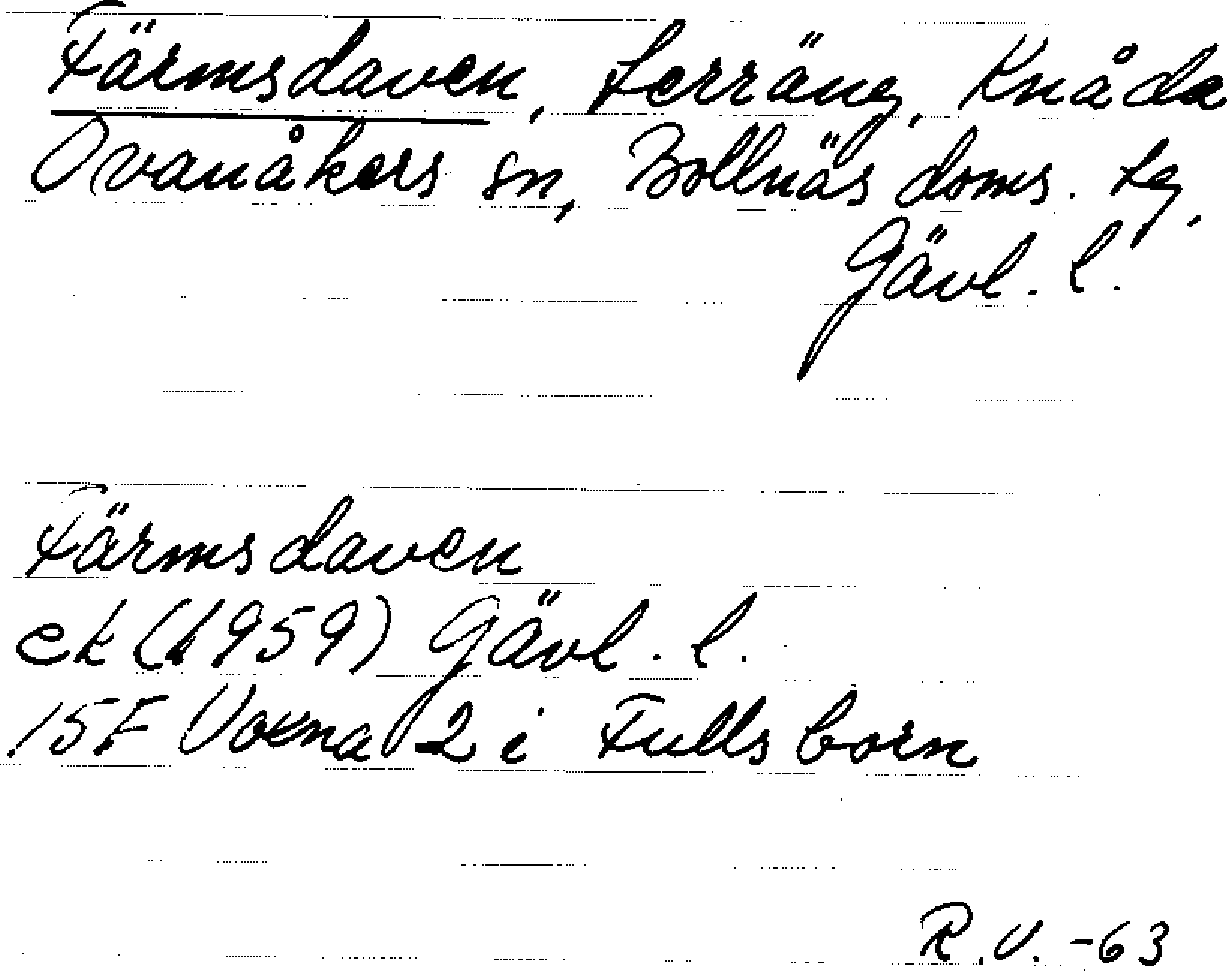 Färmsdaven, terräng, Knåda
Ovanåkers sn, Bollnäs doms. tg,
Gävl. l.
Färmsdaven
ek (1959) Gävl. l.
15F Voxna 2 i Fullsborn
R.V. -63